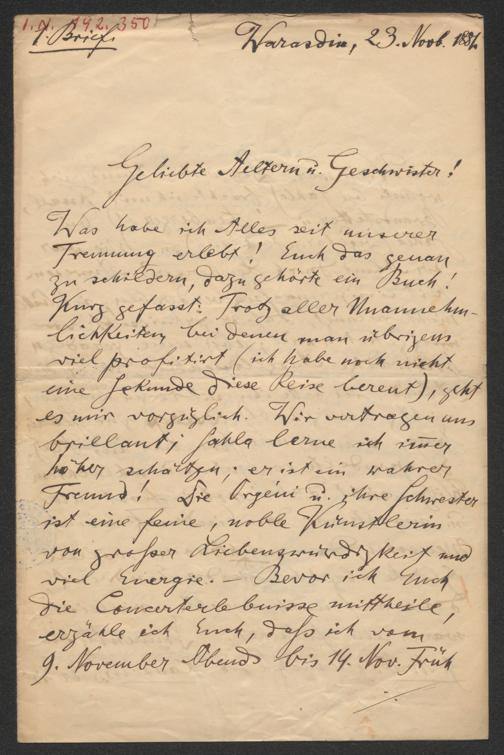 I.N. 192.350
1. Brief.
Warasdin, 23. Novb. 1881
Geliebte Aeltern u. Geschwister!
Was habe ich Alles seit unserer
Trennung erlebt! Euch das genau
zu schildern, dazu gehörte ein Buch!
Kurz gefasst: Trotz aller Unannehm-
lichkeiten bei denen man übrigens
viel profitirt (ich habe noch nicht
eine Sekunde diese Reise bereut), geht
es mir vorzüglich. Wir vertragen uns
brillant; Sahla lerne ich im̅er
höher schätzen; er ist ein wahrer
Freund! Die Orgéni u. ihre Schwester
ist eine feine, noble Künstlerin
von großer Liebenswürdigkeit und
viel Energie. – Bevor ich Euch
die Concerterlebnisse mittheile,
erzähle ich Euch, daß ich vom
9. November Abends bis 14. Nov. Früh